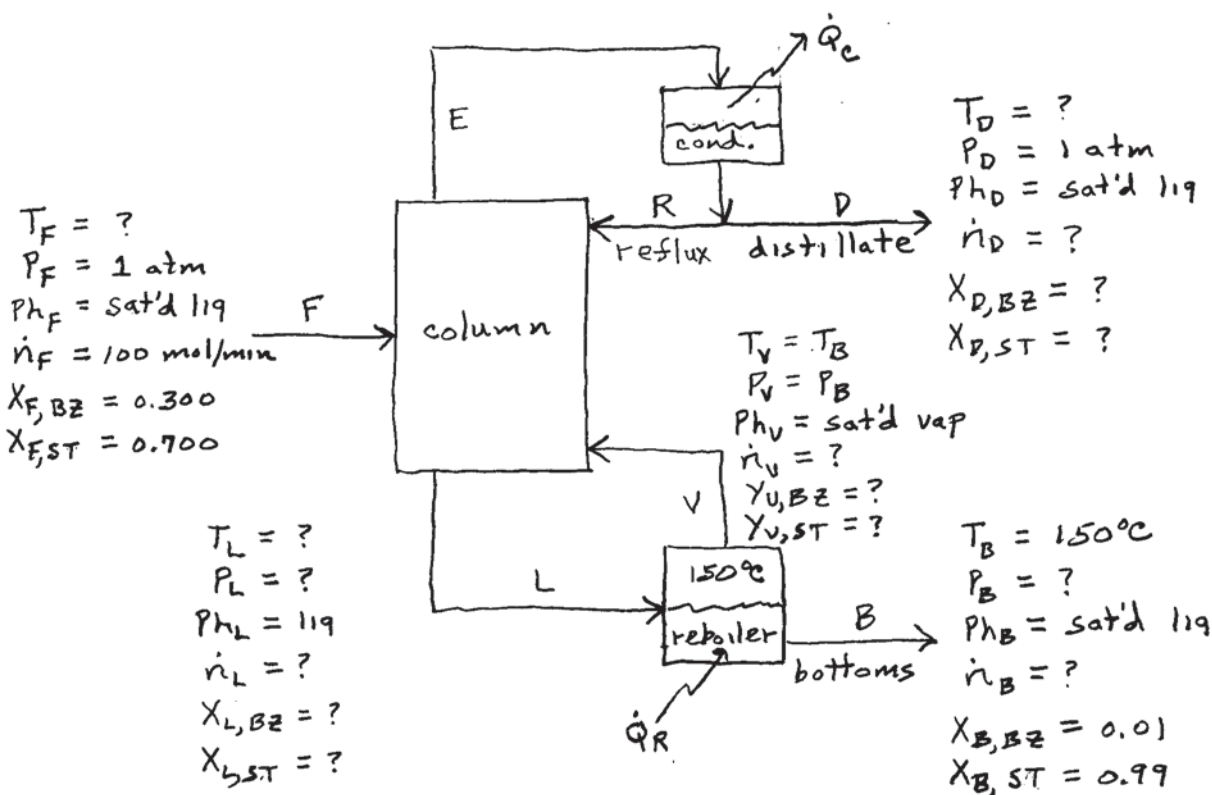 Q̇c
E
cond.
T_D = ?
P_D = 1 atm
Ph_D = sat'd liq
ṅ_D = ?
X_D,BZ = ?
X_D,ST = ?
R
D
reflux
distillate
T_F = ?
P_F = 1 atm
Ph_F = sat'd liq
ṅ_F = 100 mol/min
X_F,BZ = 0.300
X_F,ST = 0.700
F
column
T_V = T_B
P_V = P_B
Ph_V = sat'd vap
ṅ_V = ?
Y_V,BZ = ?
Y_V,ST = ?
V
T_L = ?
P_L = ?
Ph_L = liq
ṅ_L = ?
X_L,BZ = ?
X_L,ST = ?
L
150°C
reboiler
Q̇_R
B
bottoms
T_B = 150°C
P_B = ?
Ph_B = sat'd liq
ṅ_B = ?
X_B,BZ = 0.01
X_B,ST = 0.99